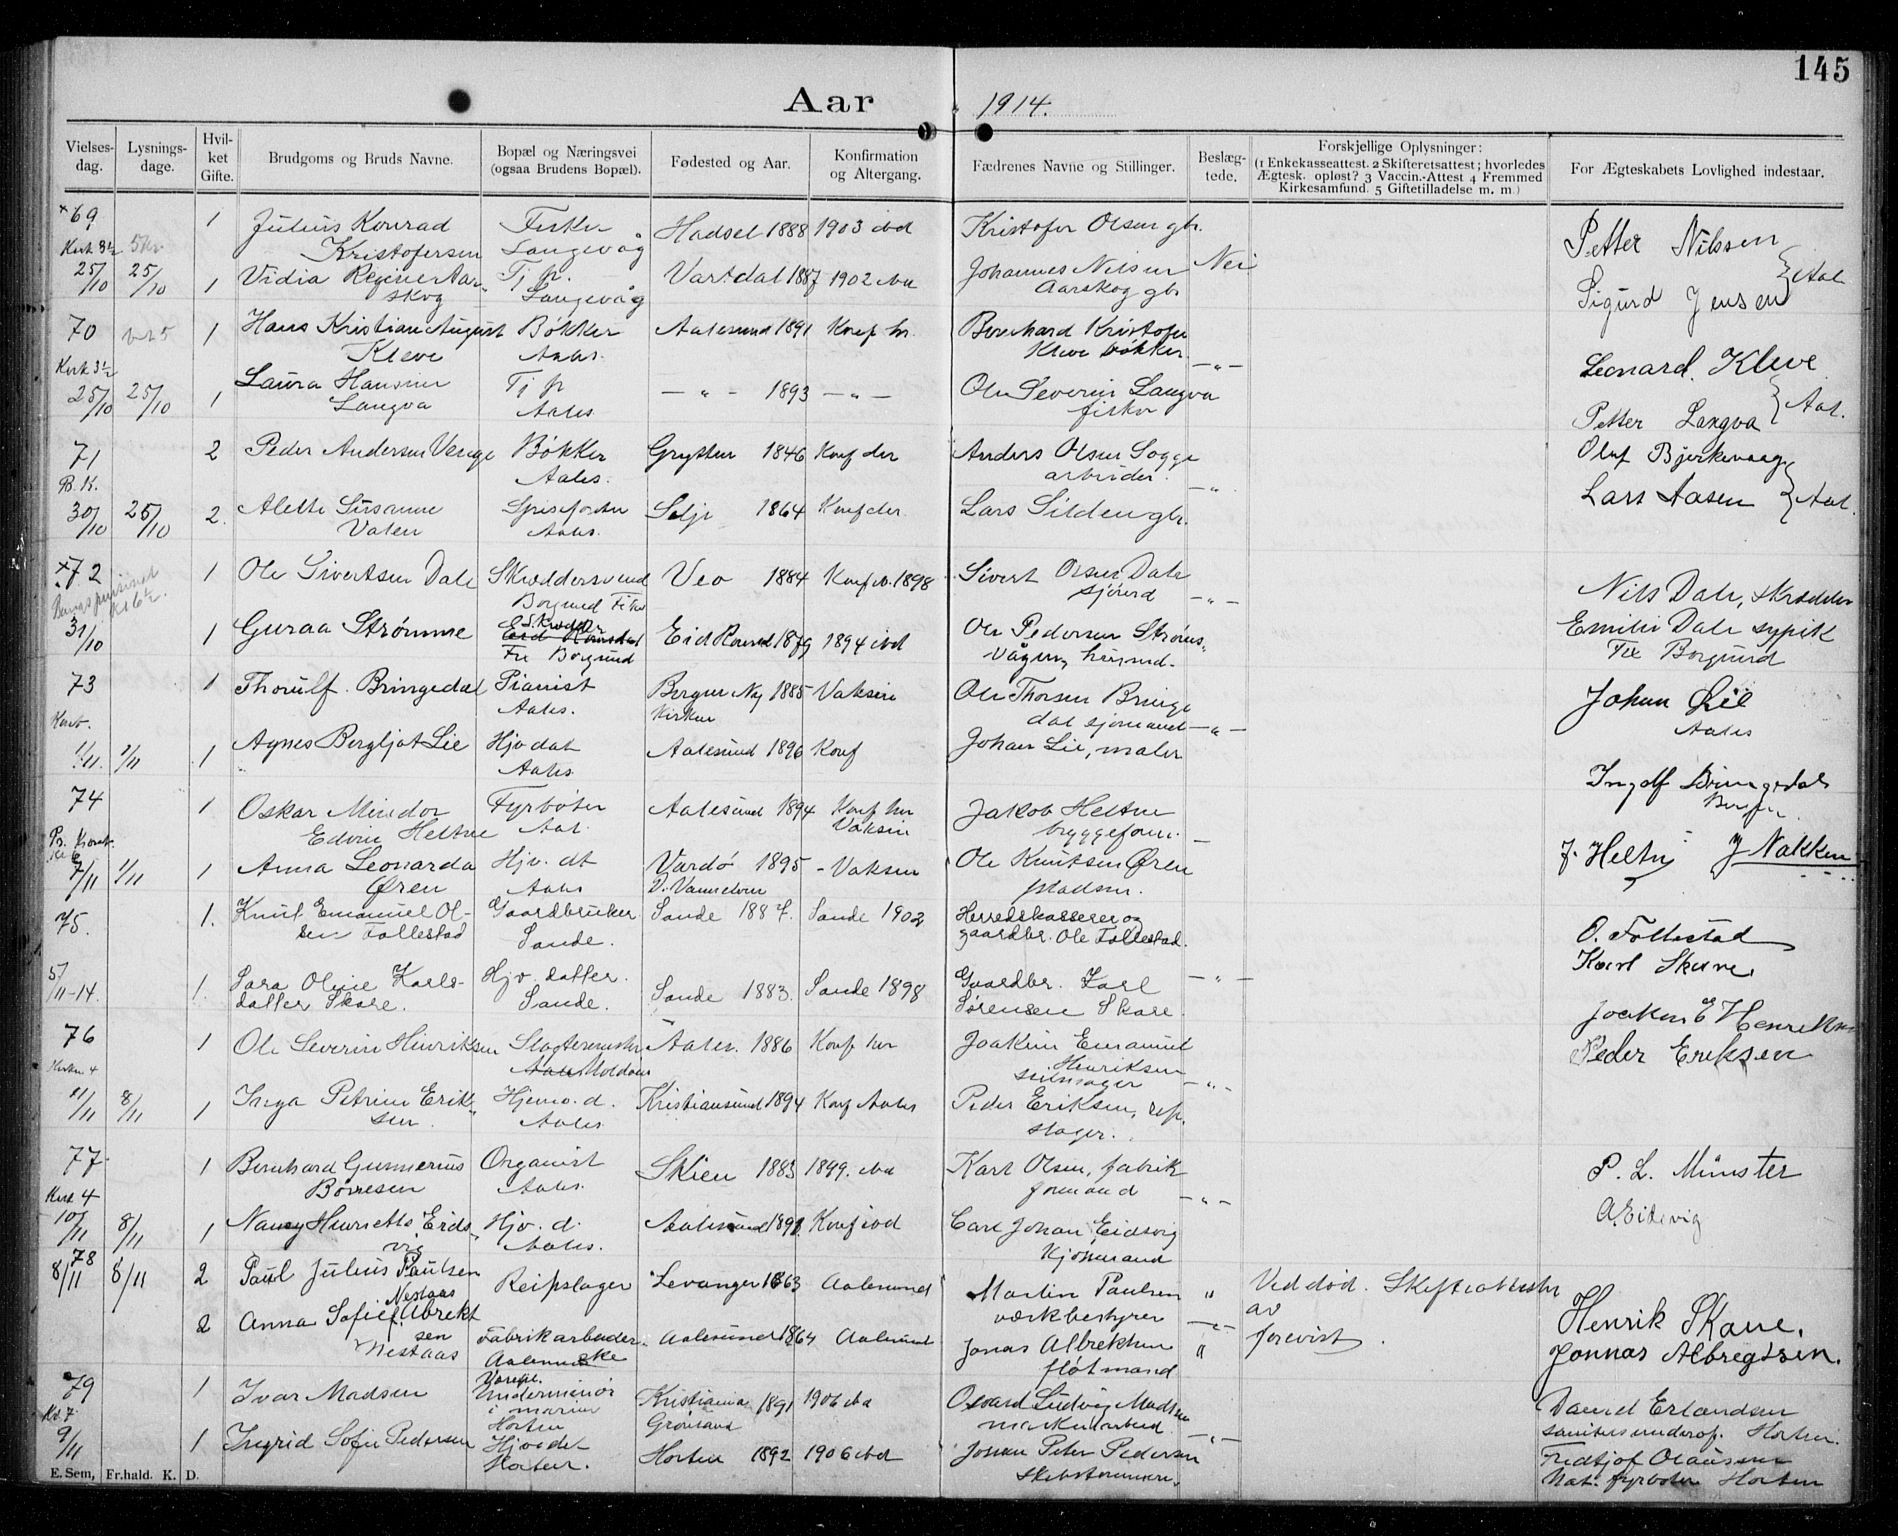 145
Aar 1914.
Vielses-dag. Lysnings-dage. Hvil-ket Gifte. Brudgoms og Bruds Navne. Bopæl og Næringsvei (ogsaa Brudens Bopæl). Fødested og Aar. Konfirmation og Altergang. Fædrenes Navne og Stillinger. Beslæg-tede. Forskjellige Oplysninger: (1 Enkekasseattest. 2 Skifteretsattest; hvorledes Ægtesk. opløst? 3 Vaccin.-Attest 4 Fremmed Kirkesamfund. 5 Giftetilladelse m. m.) For Ægteskabets Lovlighed indestaar.
69 1 Julius Konrad Fisker Hadsel 1888 1903 ibd Kristofer Olsen gbr. Petter Nilssen
Kristofersen Langevåg
25/10 25/10 1 Vidia Regine Aar- Tj. p. Vartdal 1887 1902 ibd Johannes Nilsen Nei Sigurd Jensen } Aal
skog Langevåg Aarskog gb
70 1 Hans Kristian August Bøkker Aalesund 1891 Konf. her Bernhard Kristofer
Kleve Aales. Kleve bøkker - " - Leonard. Kleve
25/10 25/10 1 Laura Hansine Tj p - " - 1893 - " - Ole Severin Langva
Langva Aales fisker Petter Langva } Aal.
71 2 Peder Andersen Venge Bøkker Grytten 1846 Konf der Anders Olsen Sogge Oluf Bjerkevaag
B. K. Aales. arbeider. - "
30/10 25/10 2. Alette Susanne Selje 1864 Konf der. Lars Silden gbr. Lars Aasen } Aal.
Valen Aales.
72 1 Ole Sivertsen Dale Skræddersvend Veø 1884 Konf. 1898 Sivert Olsen Dale Nils Dale, skrædder
Borgund - " -
31/10 1 Guraa Strømme Eid Romsd 1879 1894 ibd Ole Pedersen Strøms- Emilie Dale sypik
Borgund vågen, husmd. Fix Borgund
73 1 Thorulf Bringedal Pianist Bergen Ny 1885 Vaksin Ole Thorsen Bringe
Aales. kirken dal sjømand - " - Johan Lie
1/11. 1/11 1 Agnes Bergljot Lie Hjv dat Aalesund 1896 Konf Johan Lie, maler Aales
Aales Ingolf Bringedal
74 1 Oskar Mindor Fyrbøter Aalesund 1894 Konf her Jakob Heltne Bergen.
Edvin Heltne Aal. Vaksin bryggeform. -
7/11 1/11 1 Anna Leonarda Hjv. dt Vardø 1895 - Vaksin Ole Knutsen Øren J. Heltne J Nakken
Øren Aales
75. 1. Knut Emanuel Ol- Gaardbruker Sande 1887. Sande 1902 Herredskasserer og
sen Follestad Sande. gaardbr. Ole Follestad. O. Follestad
5/11-14. 1. Sara Oline Karls- Hjv. datter. Sande 1883. Sande 1898 Gaardbr. Karl - " - Karl Skare
datter Skare. Sande. Sørensen Skare.
76 1 Ole Severin Henriksen Aales. 1886 Konf her Joakim Emanuel Joakim E Henriksen
Henriksen Peder Eriksen
seilmager - " -
11/11 8/11 1 Inga Petrine Erik- Hjemv. d. Kristiansund 1894 Konf Aales Peder Eriksen, rep.
sen Aales. slager.
77 1 Bernhard Gunnerius Organist Skien 1883 1899. ibd Karl Olsen, fabrik P. L. Münster
Kirk 4 Børresen Aales. formand - " -
10/11 8/11 1 Nancy Henriette Eids- Hjv. d. Aalesund 1891. Konf ibd Carl Johan Eidsvig A. Eidsvig
vig Aales. Kjøbmand
78
8/11 8/11 2 Paul Julius Paulsen Reipslager Levanger 1863 Aalesund Martin Paulsen " Ved død. Skifteattester
Nestaas værkbestyrer av
2 Anna Sofie f. Albrekt Fabrikarbeider- Aalesund 1864 Aalesund Jonas Albrektsen " forevist. Henrik Skare.
sen Nestaas ske fløtmand Jonnas Albregtsen.
79 1 Ivar Madsen Underminør Kristiania 1891 1906 ibd Osvard Ludvig Madsen Daniel Erlandsen
Kl. 7 i marine Grønland
9/11 Horten - " - Horten.
1 Ingrid Sofie Pedersen Hjv dt Horten 1892 1906 ibd Johan Peter Pedersen Fredtjof Olaussen
Horten. Skibstømmerm. Mat. fyrbøter Horten
E. Sem, Fr.hald. K. D.